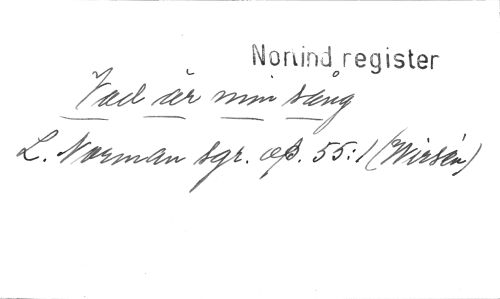 Norlind register
Vad är min sång
L. Norman sgr. op. 55:1 (Wirsén)